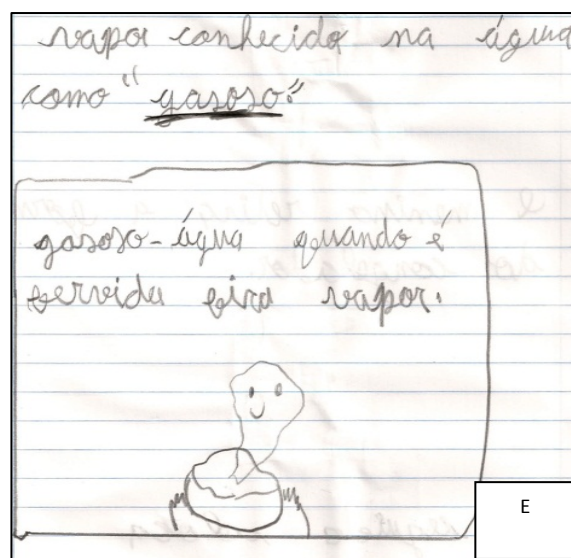 vapor conhecido na água
como "gasoso".
gasoso-água quando é
fervida fica vapor.
E